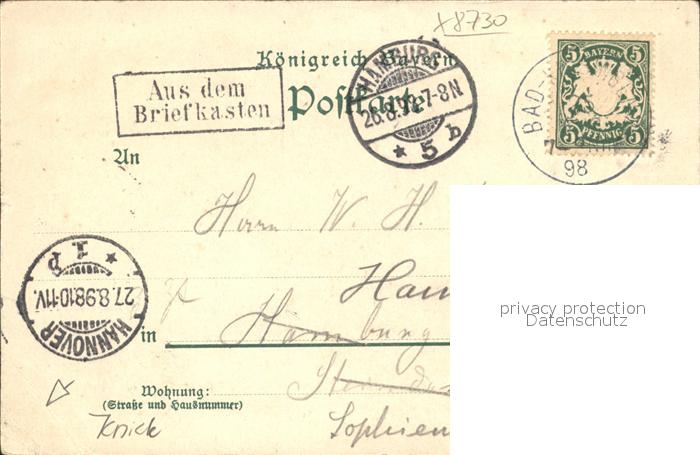 x8730
Königreich Bayern
Postkarte
Aus dem
Briefkasten
HAMBURG
26.8.98 7-8N
* 5 b
5 BAYERN 5
5 PFENNIG 5
BAD
98
An
Herrn W. H.
HANNOVER
27.8.98.10-11V.
* 1. p
Han
in Hamburg
Wohnung:
(Straße und Hausnummer)
Sophien
Knick
privacy protection
Datenschutz